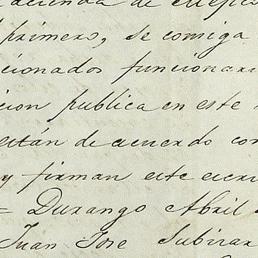 acienda de
primero, se consiga
cionados funcionari
cion publica en este
están de acuerdo con
y firman este escri
= Durango Abril
Juan Jose Subirar